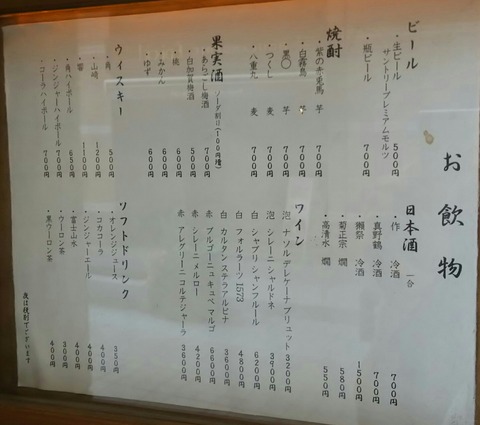 お飲物
ビール
・生ビール 500円
サントリープレミアムモルツ
・瓶ビール 700円
焼酎
・紫の赤兎馬 芋 700円
・白霧島 芋 700円
・黒〇 芋 700円
・つくし 麦 700円
・八重丸 麦 700円
果実酒 ソーダ割は(100円増)
・あらごし梅酒 700円
・白加賀梅酒 500円
・桃 600円
・みかん 600円
・ゆず 600円
ウイスキー
・角 500円
・山崎 1200円
・響 1100円
・角ハイボール 650円
・ジンジャーハイボール 700円
・コーラハイボール 700円
日本酒 一合
・作 冷酒 700円
・真野鶴 冷酒 700円
・獺祭 冷酒 1500円
・菊正宗 燗 580円
・高清水 燗 550円
ワイン
泡 ナソルデレケーナブリュット 3200円
泡 シレーニシャルドネ 3900円
白 シャブリシャンフルール 6200円
白 フォルラーツ1573 4800円
白 カルタンステラアルビナ 3600円
赤 ブルゴーニュキュベマルゴ 6600円
赤 シレーニメルロー 4200円
赤 アレグリーニコルテジャーラ 3600円
ソフトドリンク
・オレンジジュース 350円
・コカコーラ 400円
・ジンジャーエール 400円
・富士山水 400円
・ウーロン茶 300円
・黒ウーロン茶 400円